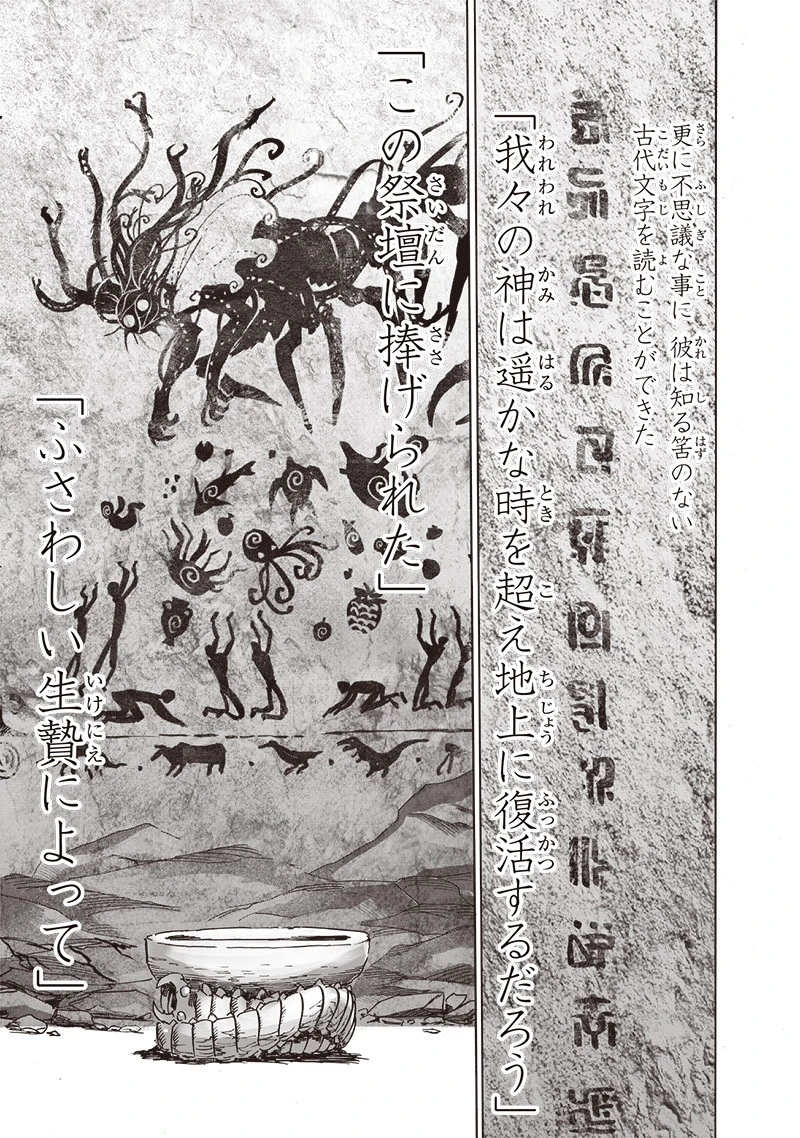 更に不思議な事に　彼は知る筈のない
古代文字を読むことができた
「我々の神は遥かな時を超え地上に復活するだろう」
「この祭壇に捧げられた」
「ふさわしい生贄によって」